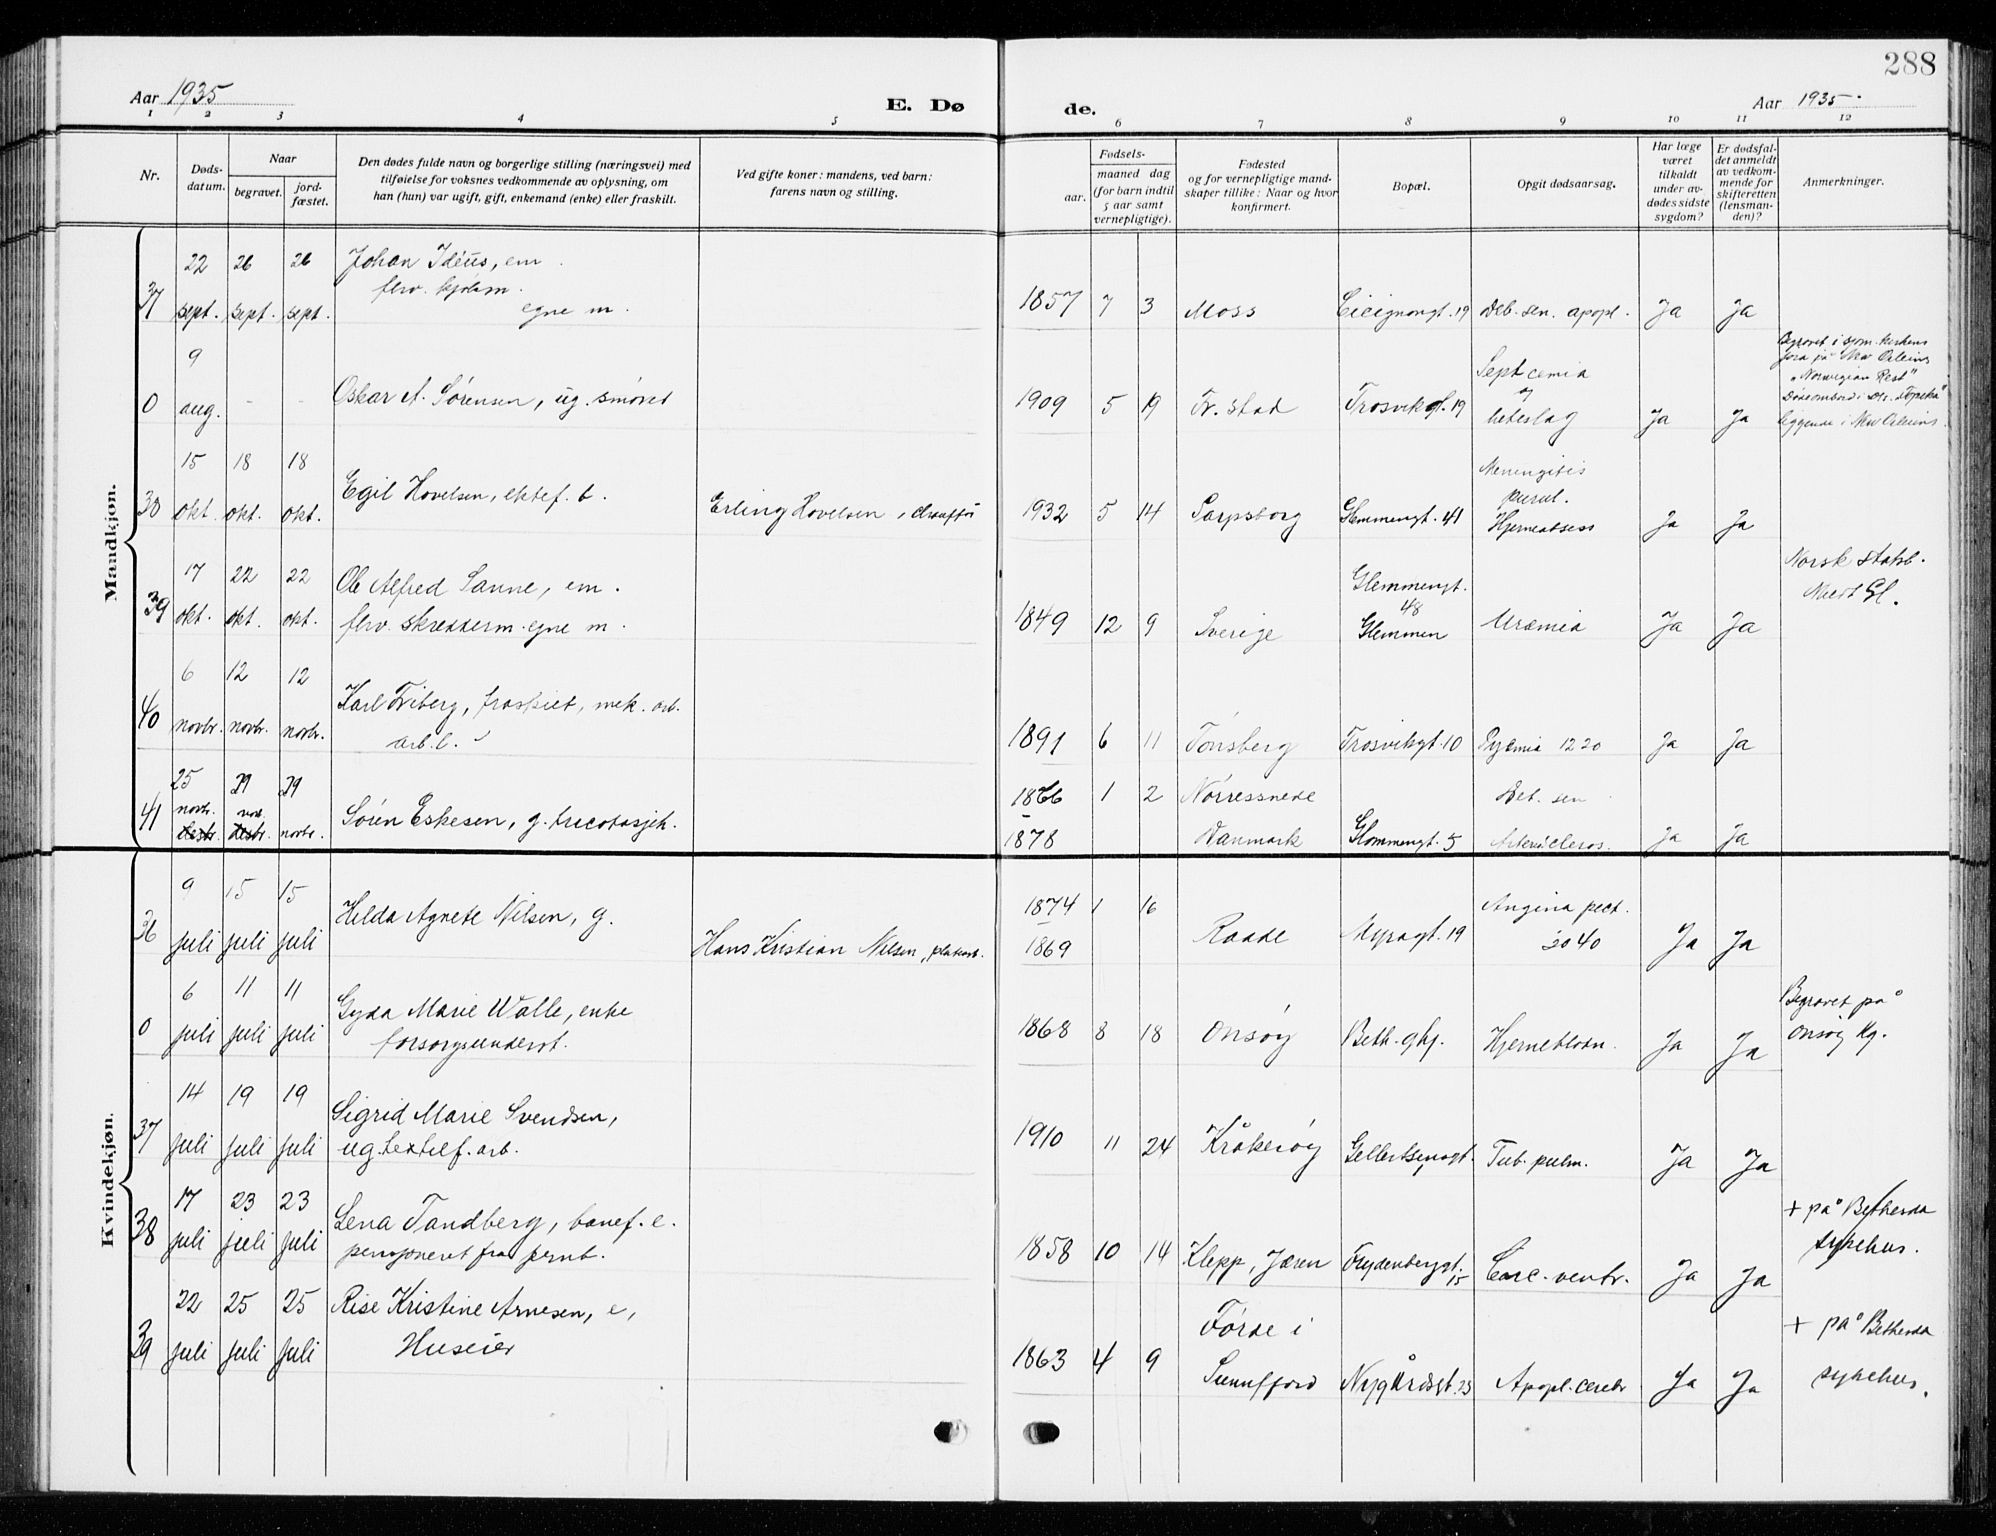 288
Aar 1935
E. Dø
de.
Aar 1935.
1 2 3 4 5 6 7 8 9 10 11 12
Nr.
Døds-
datum.
Naar
begravet.
jord-
fæstet.
Den dødes fulde navn og borgerlige stilling (næringsvei) med
tilføielse for voksnes vedkommende av oplysning, om
han (hun) var ugift, gift, enkemand (enke) eller fraskilt.
Ved gifte koner: mandens, ved barn:
farens navn og stilling.
Fødsels-
aar.
maaned dag
(for barn indtil
5 aar samt
vernepligtige).
Fødested
og for vernepligtige mand-
skaper tillike: Naar og hvor
konfirmert.
Bopæl.
Opgit dødsaarsag.
Har læge
været
tilkaldt
under av-
dødes sidste
sygdom?
Er dødsfal-
det anmeldt
av vedkom-
mende for
skifteretten
(lensman-
den)?
Anmerkninger.
Mandkjøn.
37
22 26 26
sept. sept. sept.
Johan Idéus, em.
flrv. kjølsm.
egne m.
1857 7 3 Moss
Cicignongt. 19
Deb. sen. apopl.
Ja Ja
0
9
aug. - -
Oskar A. Sørensen, ug. smører
1909 5 19 Fr.stad
Trosvikgt. 19
Septcemia
og
heteslag
Ja Ja
Begravet i sjøm. kirkens
jord på New Orleans
"Norwegian Rest"
liggende i New Orleans.
38
15 18 18
okt. okt. okt.
Egil Hovelsen, ektef. b.
Erling Hovelsen,
1932 5 14 Sarpsborg
Glemmengt. 41
Meningitis
purul.
Hjerneabsess
Ja Ja
39
17 22 22
okt. okt. okt.
Ole Alfred Sanne, em.
flrv. skredderm. egne m.
1849 12 9 Sverige
Glemmengt.
48
Glemmen
Uræmia
Ja Ja
Norsk statsb.
40
6 12 12
novbr. novbr. novbr.
Karl Friberg, fraskilt, mek. arb.
arb.l.
1891 6 11 Tønsberg
Trosvikgt. 10
Pyæmia 1220
Ja Ja
41
25 29 29
novbr. nov. novbr.
desbr. desbr.
Søren Eskesen, g. tricotasjeh.
1866 1 2
1878
Nørressnede
Danmark
Glommengt. 5
Deb. sen
Ja Ja
Kvindekjøn.
36
9 15 15
juli juli juli
Hilda Agnete Nilsen, g.
Hans Kristian Nilsen, platearb.
1874 1 16
1869
Raade
Myragt. 19
Angina pect.
2040
Ja Ja
0
6 11 11
juli juli juli
Gyda Marie Walle, enke
forsorgsunderst.
1868 8 18 Onsøy
Beth. ghj.
Hjerneblødn.
Ja Ja
Begravet på
Onsøy kg.
37
14 19 19
juli juli juli
Sigrid Marie Svendsen,
ug. textilf. arb.
1910 11 24 Kråkerøy
Gellertsengt.
Tub. pulm.
Ja Ja
38
17 23 23
juli juli juli
Lena Tandberg, banef. e.
pensjoneret fra jernb.
1858 10 14 Klepp, Jæren
Frydenberggt.
15
Canc. ventr.
Ja Ja
+ på Bethesda
sykehus.
39
22 25 25
juli juli juli
Rise Kristine Arnesen, e,
Huseier
1863 4 9
Førde i
Sunnfjord
Nygårdsgt. 23
Apopl. cerebr
Ja Ja
+ på Bethesda
sykehus.